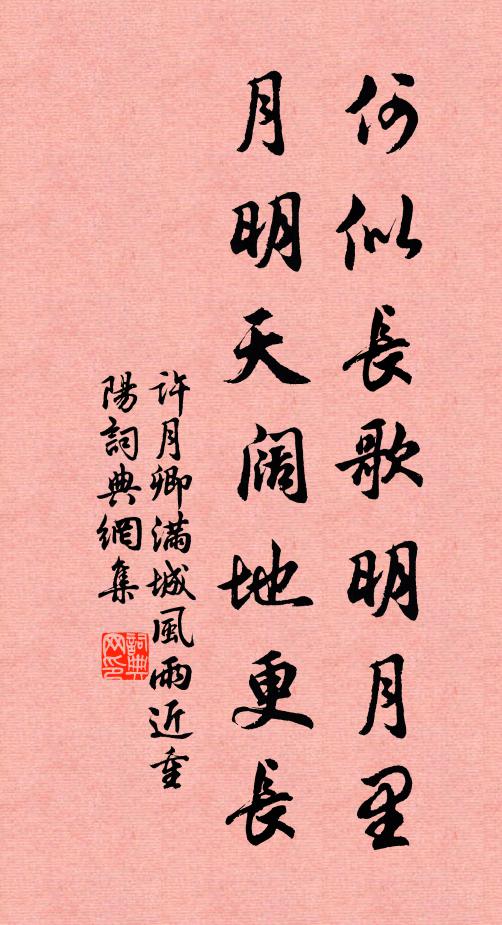 何似長歌明月里
月明天阔地更長
許月卿滿城風雨近重
陽詞典網集
詞典
网印